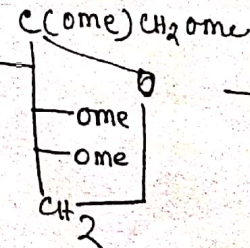 C(ome)CH2 ome
O
ome
ome
CH2